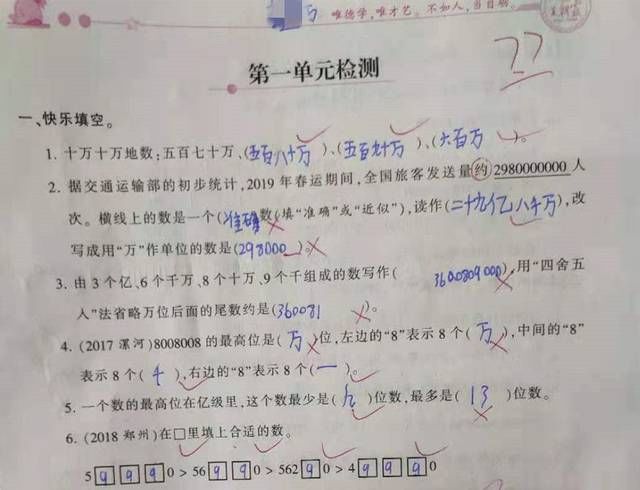 唯德学,唯才艺。不如人,当自励。
77
第一单元检测
一、快乐填空。
1. 十万十万地数:五百七十万、(五百八十万)、(五百九十万)、(六百万)。
2. 据交通运输部的初步统计,2019年春运期间,全国旅客发送量约2980000000人
次。横线上的数是一个(准确)数(填“准确”或“近似”),读作(二十九亿八千万),改
写成用“万”作单位的数是(298000)。
3. 由3个亿、6个千万、8个十万、9个千组成的数写作(360809000),用“四舍五
入”法省略万位后面的尾数约是(360081)。
4. (2017 漯河)8008008的最高位是(万)位,左边的“8”表示8个(万),中间的“8”
表示8个(千),右边的“8”表示8个(一)。
5. 一个数的最高位在亿级里,这个数最少是(九)位数,最多是(13)位数。
6. (2018 郑州)在□里填上合适的数。
5 9 9 9 0 > 56 9 9 0 > 562 9 0 > 4 9 9 9 0